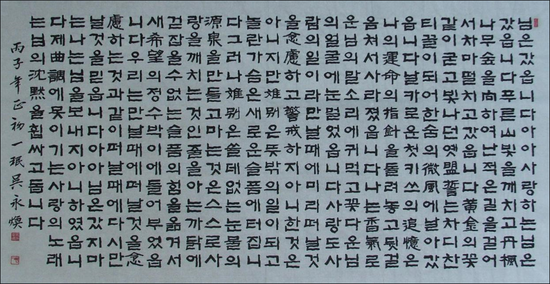 님은갔읍니다아아사랑하는님은
갔읍니다푸른山빛을깨치고丹楓
나무숲을向하여난적은길을걸어
서차마떨치고갔읍니다黃金의꽃
같이굳고빛나던옛盟誓는차디찬
티끌이되어한숨의微風에날아갔
읍니다날카로운첫키쓰의追憶은
나의運命의指針을돌려놓고뒷걸
음쳐서사라졌읍니다나는香氣로
운님의말소리에귀먹고꽃다운님
의얼굴에눈멀었읍니다사랑도사
람의일이라만날때에미리떠날것
을念慮하고警戒하지아니한것은
아니지만離別은뜻밖의일이되고
놀란가슴은새로운슬픔에터집니
다그러나離別은쓸데없는눈물의
源泉을만들고마는것은스스로사
랑을깨치는것인줄을아는까닭에
걷잡을수없는슬픔의힘을옮겨서
새希望의정수박이에들어부었읍
니다우리는만날때에떠날것을念
慮하는것과같이떠날때에다시만
날것을믿읍니다아아님은갔지마
는나는님을보내지아니하였읍니
다제曲調에못이기는사랑의노래
는님의沈黙을휩싸고돕니다
丙子年正初一珉吳永煥